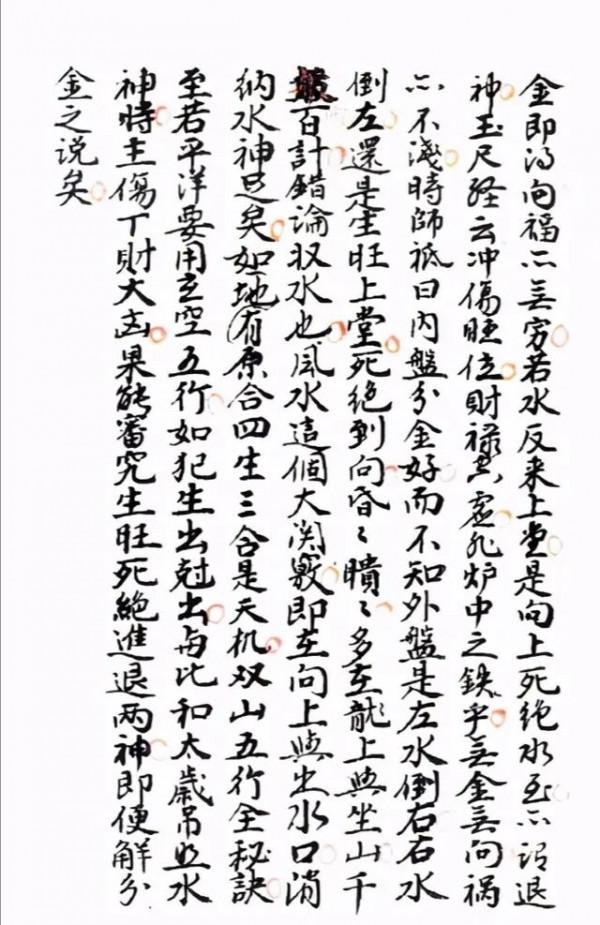 金即為向福亦無穷若水反来上堂是向上死绝水至亦謂退
神玉尺经云冲傷旺位財禄……虚非炉中之鉄乎無金無向祸
亦不浅時師祗曰内盤分金好而不知外盤是左水倒右右水
倒左還是生旺上堂死绝到向昏〻瞶〻多在龍上與坐山千
般百計錯論収水也風水這個大関竅即在向上與出水口消
纳水神足矣如地有原合四生三合是天机双山五行全秘訣
至若平洋要用玄空五行如犯生出尅出与比和太歲吊照水
神時主傷丁財大凶果能審究生旺死絶進退两神即便解分
金之说矣